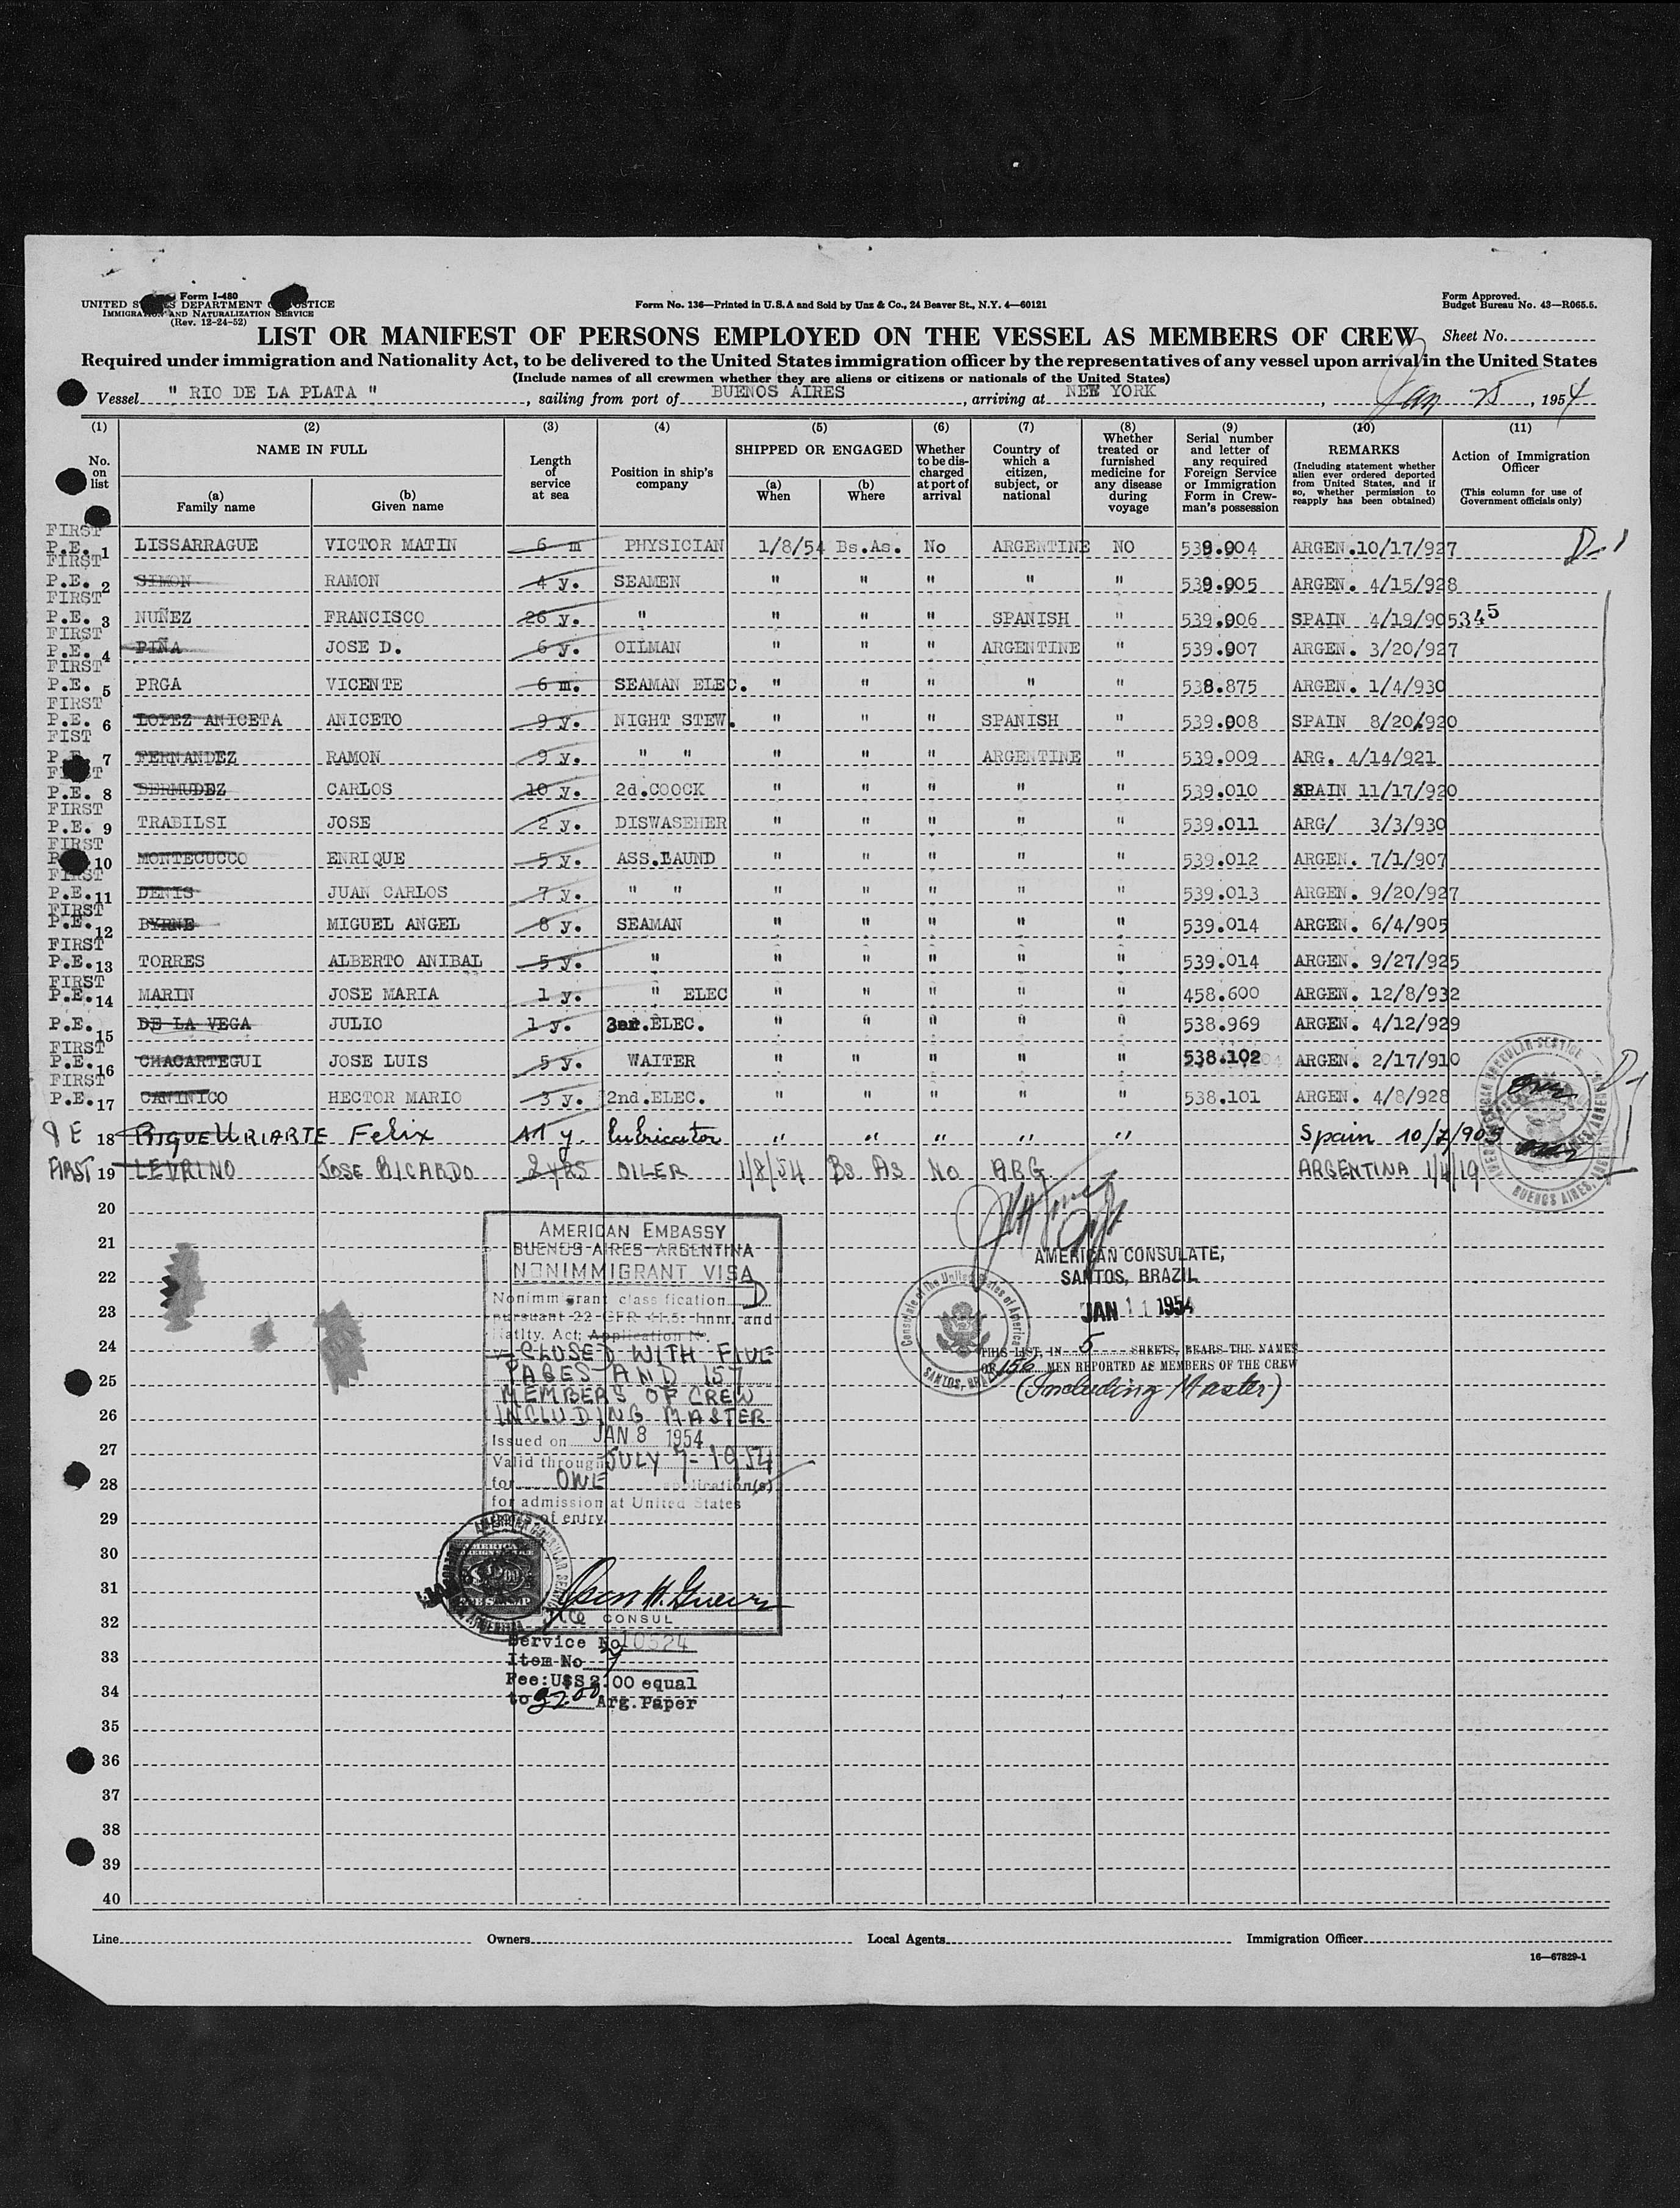 Form I-480
UNITED STATES DEPARTMENT OF JUSTICE
IMMIGRATION AND NATURALIZATION SERVICE
(Rev. 12-24-52)
Form No. 136—Printed in U.S.A and Sold by Unz & Co., 24 Beaver St., N.Y. 4—60121
Form Approved.
Budget Bureau No. 43—R065.5.
LIST OR MANIFEST OF PERSONS EMPLOYED ON THE VESSEL AS MEMBERS OF CREW
Sheet No.
Required under immigration and Nationality Act, to be delivered to the United States immigration officer by the representatives of any vessel upon arrival in the United States
(Include names of all crewmen whether they are aliens or citizens or nationals of the United States)
Vessel " RIO DE LA PLATA ", sailing from port of BUENOS AIRES, arriving at NEW YORK, Jan 25, 1954
(1) (2) (3) (4) (5) (6) (7) (8) (9) (10) (11)
No. on list
NAME IN FULL
(a) Family name
(b) Given name
Length of service at sea
Position in ship's company
SHIPPED OR ENGAGED
(a) When
(b) Where
Whether to be discharged at port of arrival
Country of which a citizen, subject, or national
Whether treated or furnished medicine for any disease during voyage
Serial number and letter of any required Foreign Service or Immigration Form in Crewman's possession
REMARKS
(Including statement whether alien ever ordered deported from United States, and if so, whether permission to reapply has been obtained)
Action of Immigration Officer
(This column for use of Government officials only)
FIRST
P.E. 1 LISSARRAGUE VICTOR MATIN 6 m PHYSICIAN 1/8/54 Bs.As. No ARGENTINE NO 539.004 ARGEN.10/17/927 D-1
FIRST
P.E. 2 SIMON RAMON 4 y. SEAMEN " " " " " 539.005 ARGEN. 4/15/928
FIRST
P.E. 3 NUÑEZ FRANCISCO 26 y. " " " " SPANISH " 539.006 SPAIN 4/19/905 345
FIRST
P.E. 4 PIÑA JOSE D. 6 y. OILMAN " " " ARGENTINE " 539.007 ARGEN. 3/20/927
FIRST
P.E. 5 PRGA VICENTE 6 m. SEAMAN ELEC. " " " " " 538.875 ARGEN. 1/4/930
FIRST
P.E. 6 LOPEZ ANICETA ANICETO 9 y. NIGHT STEW. " " " SPANISH " 539.008 SPAIN 8/20/920
FIST
P.E. 7 FERNANDEZ RAMON 9 y. " " " " " ARGENTINE " 539.009 ARG. 4/14/921
FIRST
P.E. 8 BERMUDEZ CARLOS 10 y. 2d.COOCK " " " " " 539.010 SPAIN 11/17/920
FIRST
P.E. 9 TRABILSI JOSE 2 y. DISWASEHER " " " " " 539.011 ARG/ 3/3/930
FIRST
P.E. 10 MONTECUCCO ENRIQUE 5 y. ASS.LAUND " " " " " 539.012 ARGEN. 7/1/907
FIRST
P.E. 11 DENIS JUAN CARLOS 7 y. " " " " " " " 539.013 ARGEN. 9/20/927
FIRST
P.E. 12 BYRNE MIGUEL ANGEL 8 y. SEAMAN " " " " " 539.014 ARGEN. 6/4/905
FIRST
P.E. 13 TORRES ALBERTO ANIBAL 5 y. " " " " " " 539.014 ARGEN. 9/27/925
FIRST
P.E. 14 MARIN JOSE MARIA 1 y. " ELEC " " " " " 458.600 ARGEN. 12/8/932
P.E. 15 DE LA VEGA JULIO 1 y. 3er.ELEC. " " " " " 538.969 ARGEN. 4/12/929
FIRST
P.E. 16 CHACARTEGUI JOSE LUIS 5 y. WAITER " " " " " 538.102 ARGEN. 2/17/910
FIRST
P.E. 17 CANINICO HECTOR MARIO 3 y. 2nd.ELEC. " " " " " 538.101 ARGEN. 4/8/928
PE 18 URIARTE Felix 11 y. lubricator " " " " " Spain 10/7/905
FIRST 19 LEVRINO JOSE RICARDO 2 YRS OILER 1/8/54 Bs. As No ARG. ARGENTINA 1/4/19
D-1
AMERICAN CONSULAR SERVICE
BUENOS AIRES, ARGENTINA
20
21
22
23
24
25
26
27
28
29
30
31
32
33
34
35
36
37
38
39
40
AMERICAN EMBASSY
BUENOS AIRES-ARGENTINA
NONIMMIGRANT VISA
Nonimmigrant classification D
pursuant 22 CFR 41.5: Imm. and
Natlty. Act; Application No.
CLOSED WITH FIVE
PAGES AND 157
MEMBERS OF CREW
INCLUDING MASTER
Issued on JAN 8 1954
Valid through JULY 7-1954
for ONE application(s)
for admission at United States
ports of entry.
AMERICAN
FOREIGN SERVICE
$2.00
FEE STAMP
Vice CONSUL
Service No 10524
Item No 7
Fee: U$S 2.00 equal
to Arg. Paper
AMERICAN CONSULATE,
SANTOS, BRAZIL
JAN 11 1954
Consulate of the United States of America
SANTOS, BRAZIL
THIS LIST, IN 5 SHEETS, BEARS THE NAMES
OF 156 MEN REPORTED AS MEMBERS OF THE CREW
(Including Master)
Line Owners Local Agents Immigration Officer
16—67829-1